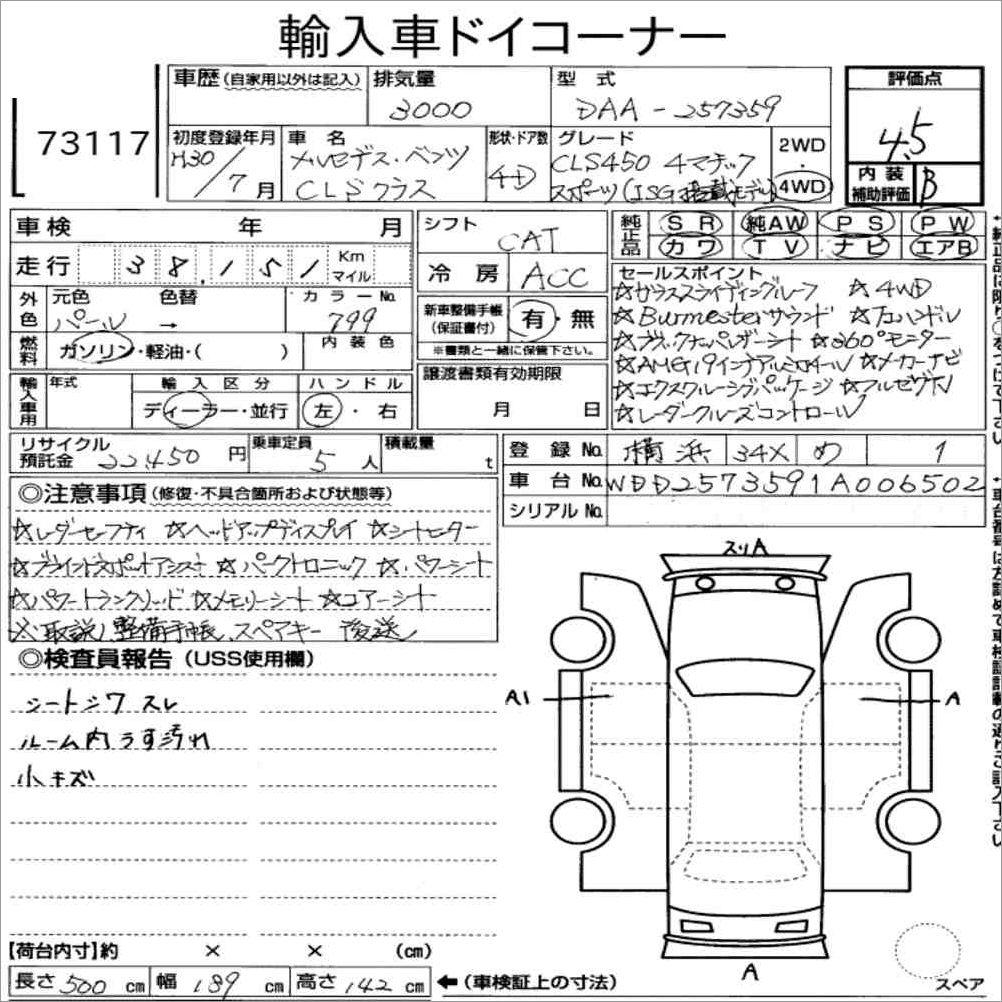 輸入車ドイコーナー
73117
車歴(自家用以外は記入)
排気量
3000
型式
DAA-257359
評価点
4.5
初度登録年月
H30/7月
車名
メルセデス・ベンツ
CLSクラス
形状・ドア数
4D
グレード
CLS450 4マチック
スポーツ(ISG搭載モデル)
2WD
・
4WD
内装
補助評価
B
車検 年 月
走行 38,151 Km マイル
シフト
CAT
冷房
ACC
純正品
SR 純AW PS PW
カワ TV ナビ エアB
外色
元色 色替
パール →
カラーNo.
799
燃料
ガソリン・軽油・( )
内装色
新車整備手帳
(保証書付)
有・無
※書類と一緒に保管下さい。
セールスポイント
☆ガラススライディングルーフ ☆4WD
☆Burmesterサウンド ☆左ハンドル
☆ブラックナッパレザーシート ☆360°モニター
☆AMG19インチアルミホイール ☆メーカーナビ
☆エクスクルーシブパッケージ ☆フルセグTV
☆レーダークルーズコントロール
輸入車用
年式
輸入区分
ディーラー・並行
ハンドル
左・右
譲渡書類有効期限
月 日
リサイクル
預託金 22,450円
乗車定員
5人
積載量
t
登録No. 横浜 34X め 1
車台No. WDD2573591A006502
シリアルNo.
◎注意事項(修復・不具合箇所および状態等)
☆レーダーセーフティ ☆ヘッドアップディスプレイ ☆シートヒーター
☆ブラインドスポットアシスト ☆パークトロニック ☆パワーシート
☆パワートランクリッド ☆メモリーシート ☆エアーシート
※取説、整備手帳、スペアキー 後送
◎検査員報告(USS使用欄)
シートシワ スレ
ルーム内うす汚れ
小キズ
スリA
A1
A
A
スペア
【荷台内寸】約 × × (cm)
長さ500cm 幅189cm 高さ142cm ←(車検証上の寸法)